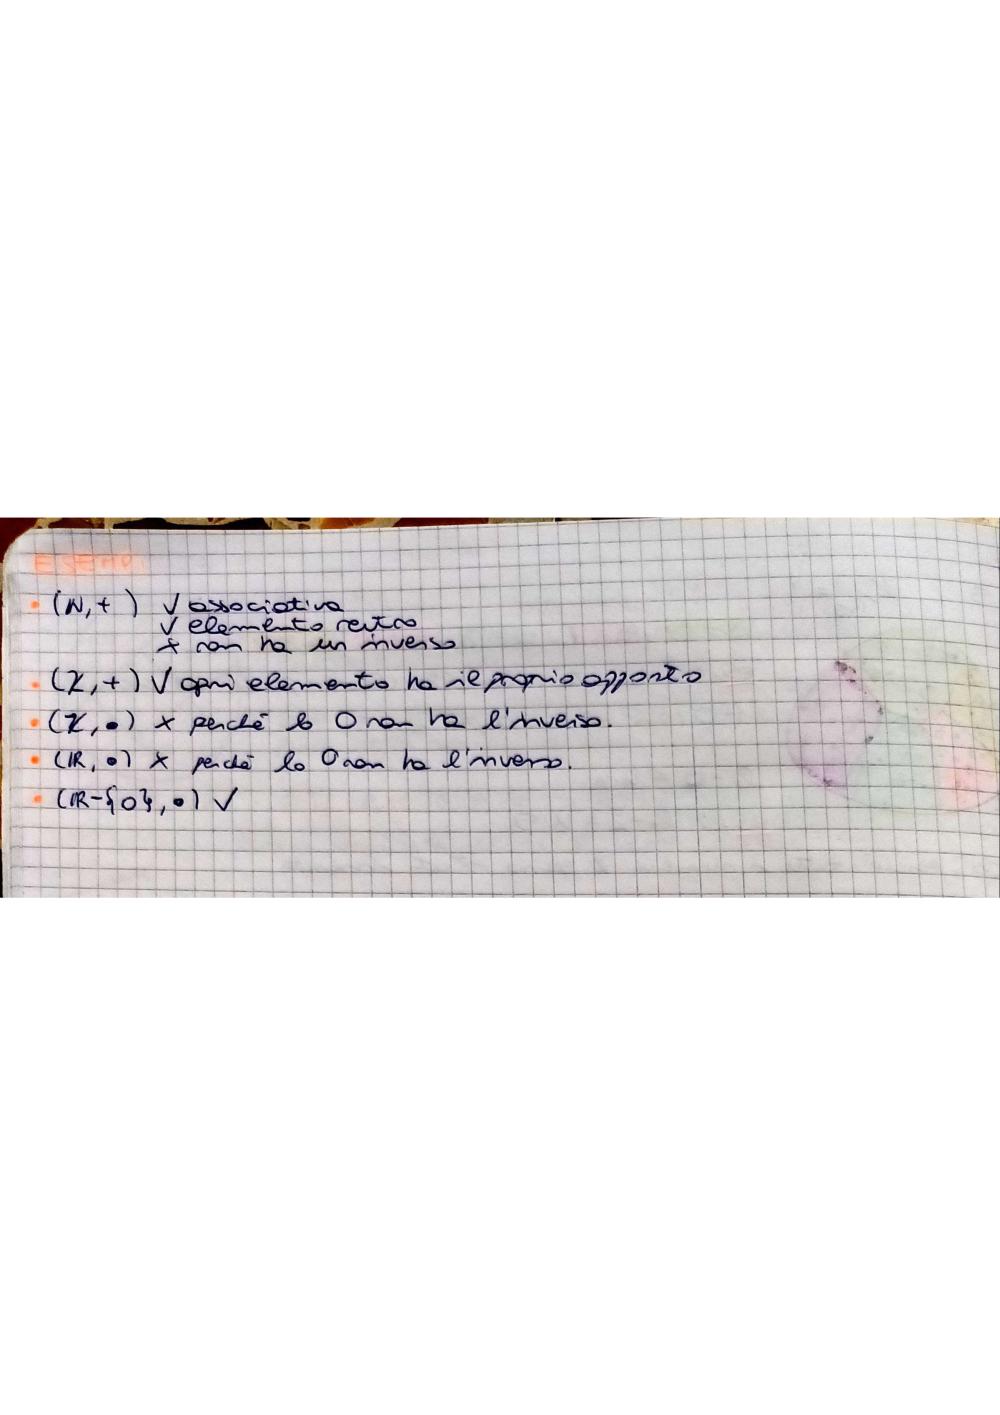 ESEMPI
• (N, +) √ associativa
√ elemento neutro
x non ha un inverso
• (Z, +) √ ogni elemento ha il proprio opposto
• (Z, •) x perché lo 0 non ha l'inverso.
• (R, •) x perché lo 0 non ha l'inverso.
• (R-{0}, •) √